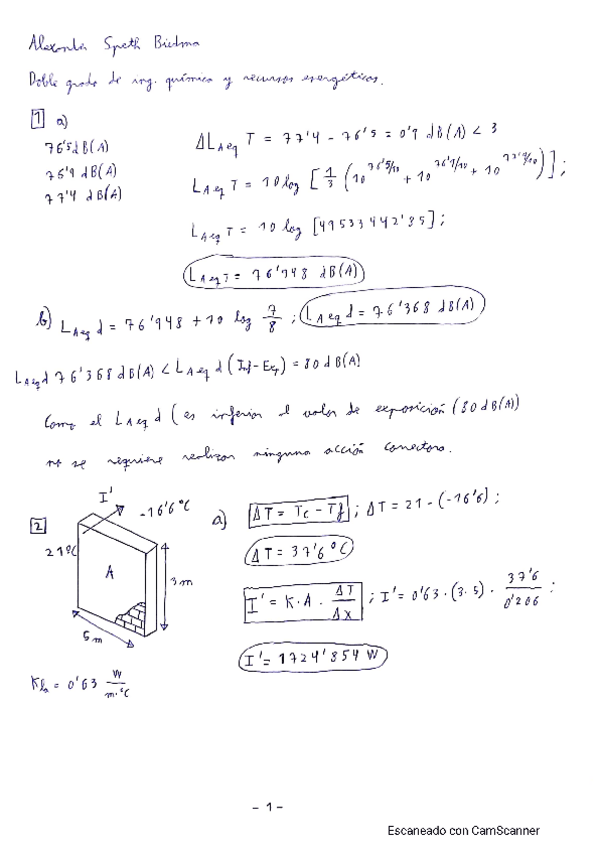 Alexandra Speth Bielma
Doble grado de ing. química y recursos energéticos.
1 a)
76'5 dB(A)
76'9 dB(A)
77'4 dB(A)
ΔL Aeq T = 77'4 - 76'5 = 0'9 dB(A) < 3
L Aeq T = 10 log [1/3 (10^76'5/10 + 10^76'9/10 + 10^77'4/10)];
L Aeq T = 10 log [49533442'35];
L Aeq T = 76'948 dB(A)
b) L Aeq d = 76'948 + 10 log 7/8 ; L Aeq d = 76'368 dB(A)
L Aeq d 76'368 dB(A) < L Aeq d (Inf-Exp) = 80 dB(A)
Como el L Aeq d (es inferior al valor de exposición (80 dB(A))
no se requiere realizar ninguna acción correctora.
2
I'
-16'6 ºC
21ºC
A
3 m
5 m
a) ΔT = Tc - Tf ; ΔT = 21 - (-16'6) ;
ΔT = 37'6 ºC
I' = K · A · ΔT/Δx ; I' = 0'63 · (3·5) · 37'6/0'206 ;
I' = 1724'854 W
K = 0'63 W/m·ºC
- 1 -
Escaneado con CamScanner